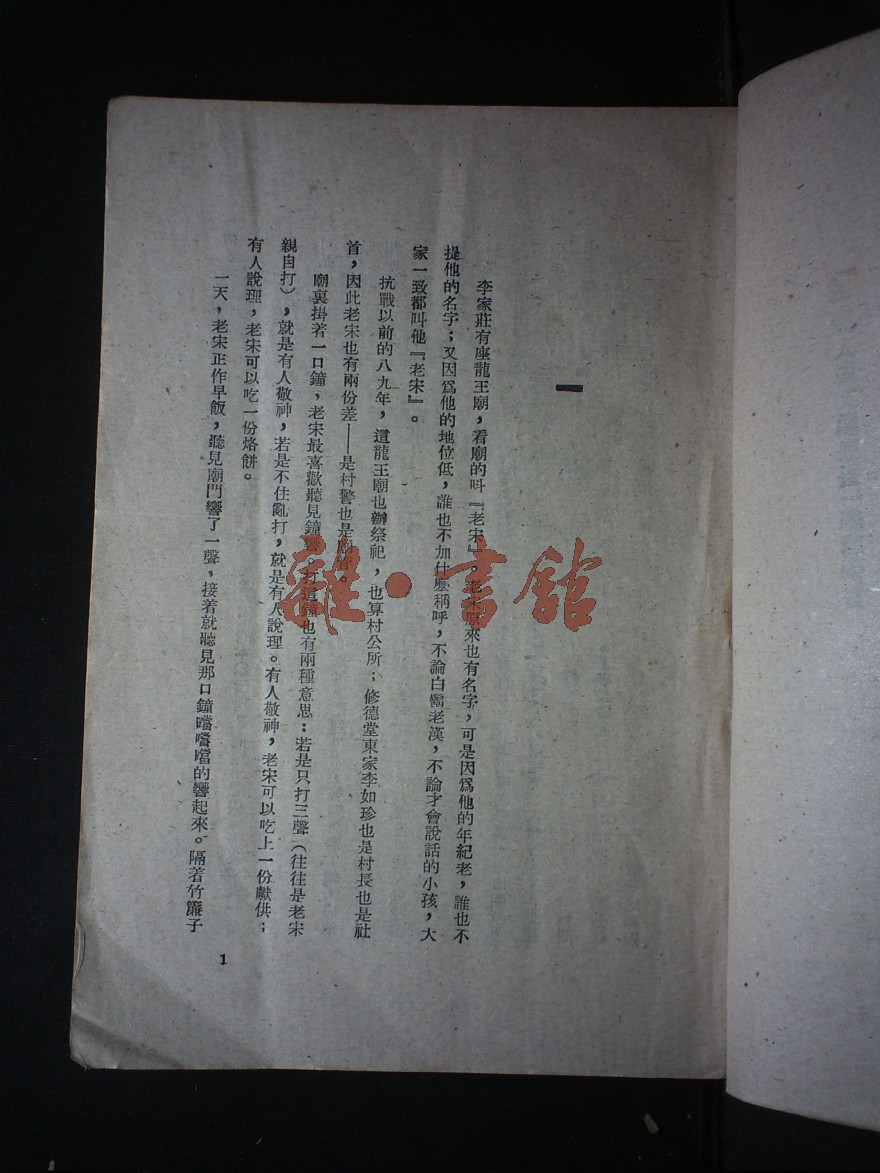 一
李家莊有座龍王廟，看廟的叫『老宋』。老宋原來也有名字，可是因爲他的年紀老，誰也不
提他的名字；又因爲他的地位低，誰也不加什麽稱呼，不論白鬍老漢，不論才會說話的小孩，大
家一致都叫他『老宋』。
抗戰以前的八九年，這龍王廟也辦祭祀，也算村公所；修德堂東家李如珍也是村長也是社
首，因此老宋也有兩份差——是村警也是廟管。
廟裏掛着一口鐘，老宋最喜歡聽見鐘響。打這鐘也有兩種意思：若是只打三聲（往往是老宋
親自打），就是有人敬神，若是不住亂打，就是有人說理。有人敬神，老宋可以吃上一份獻供；
有人說理，老宋可以吃一份烙餅。
一天，老宋正作早飯，聽見廟門響了一聲，接着就聽見那口鐘噹噹噹的響起來。隔着竹簾子
1
雜·書館